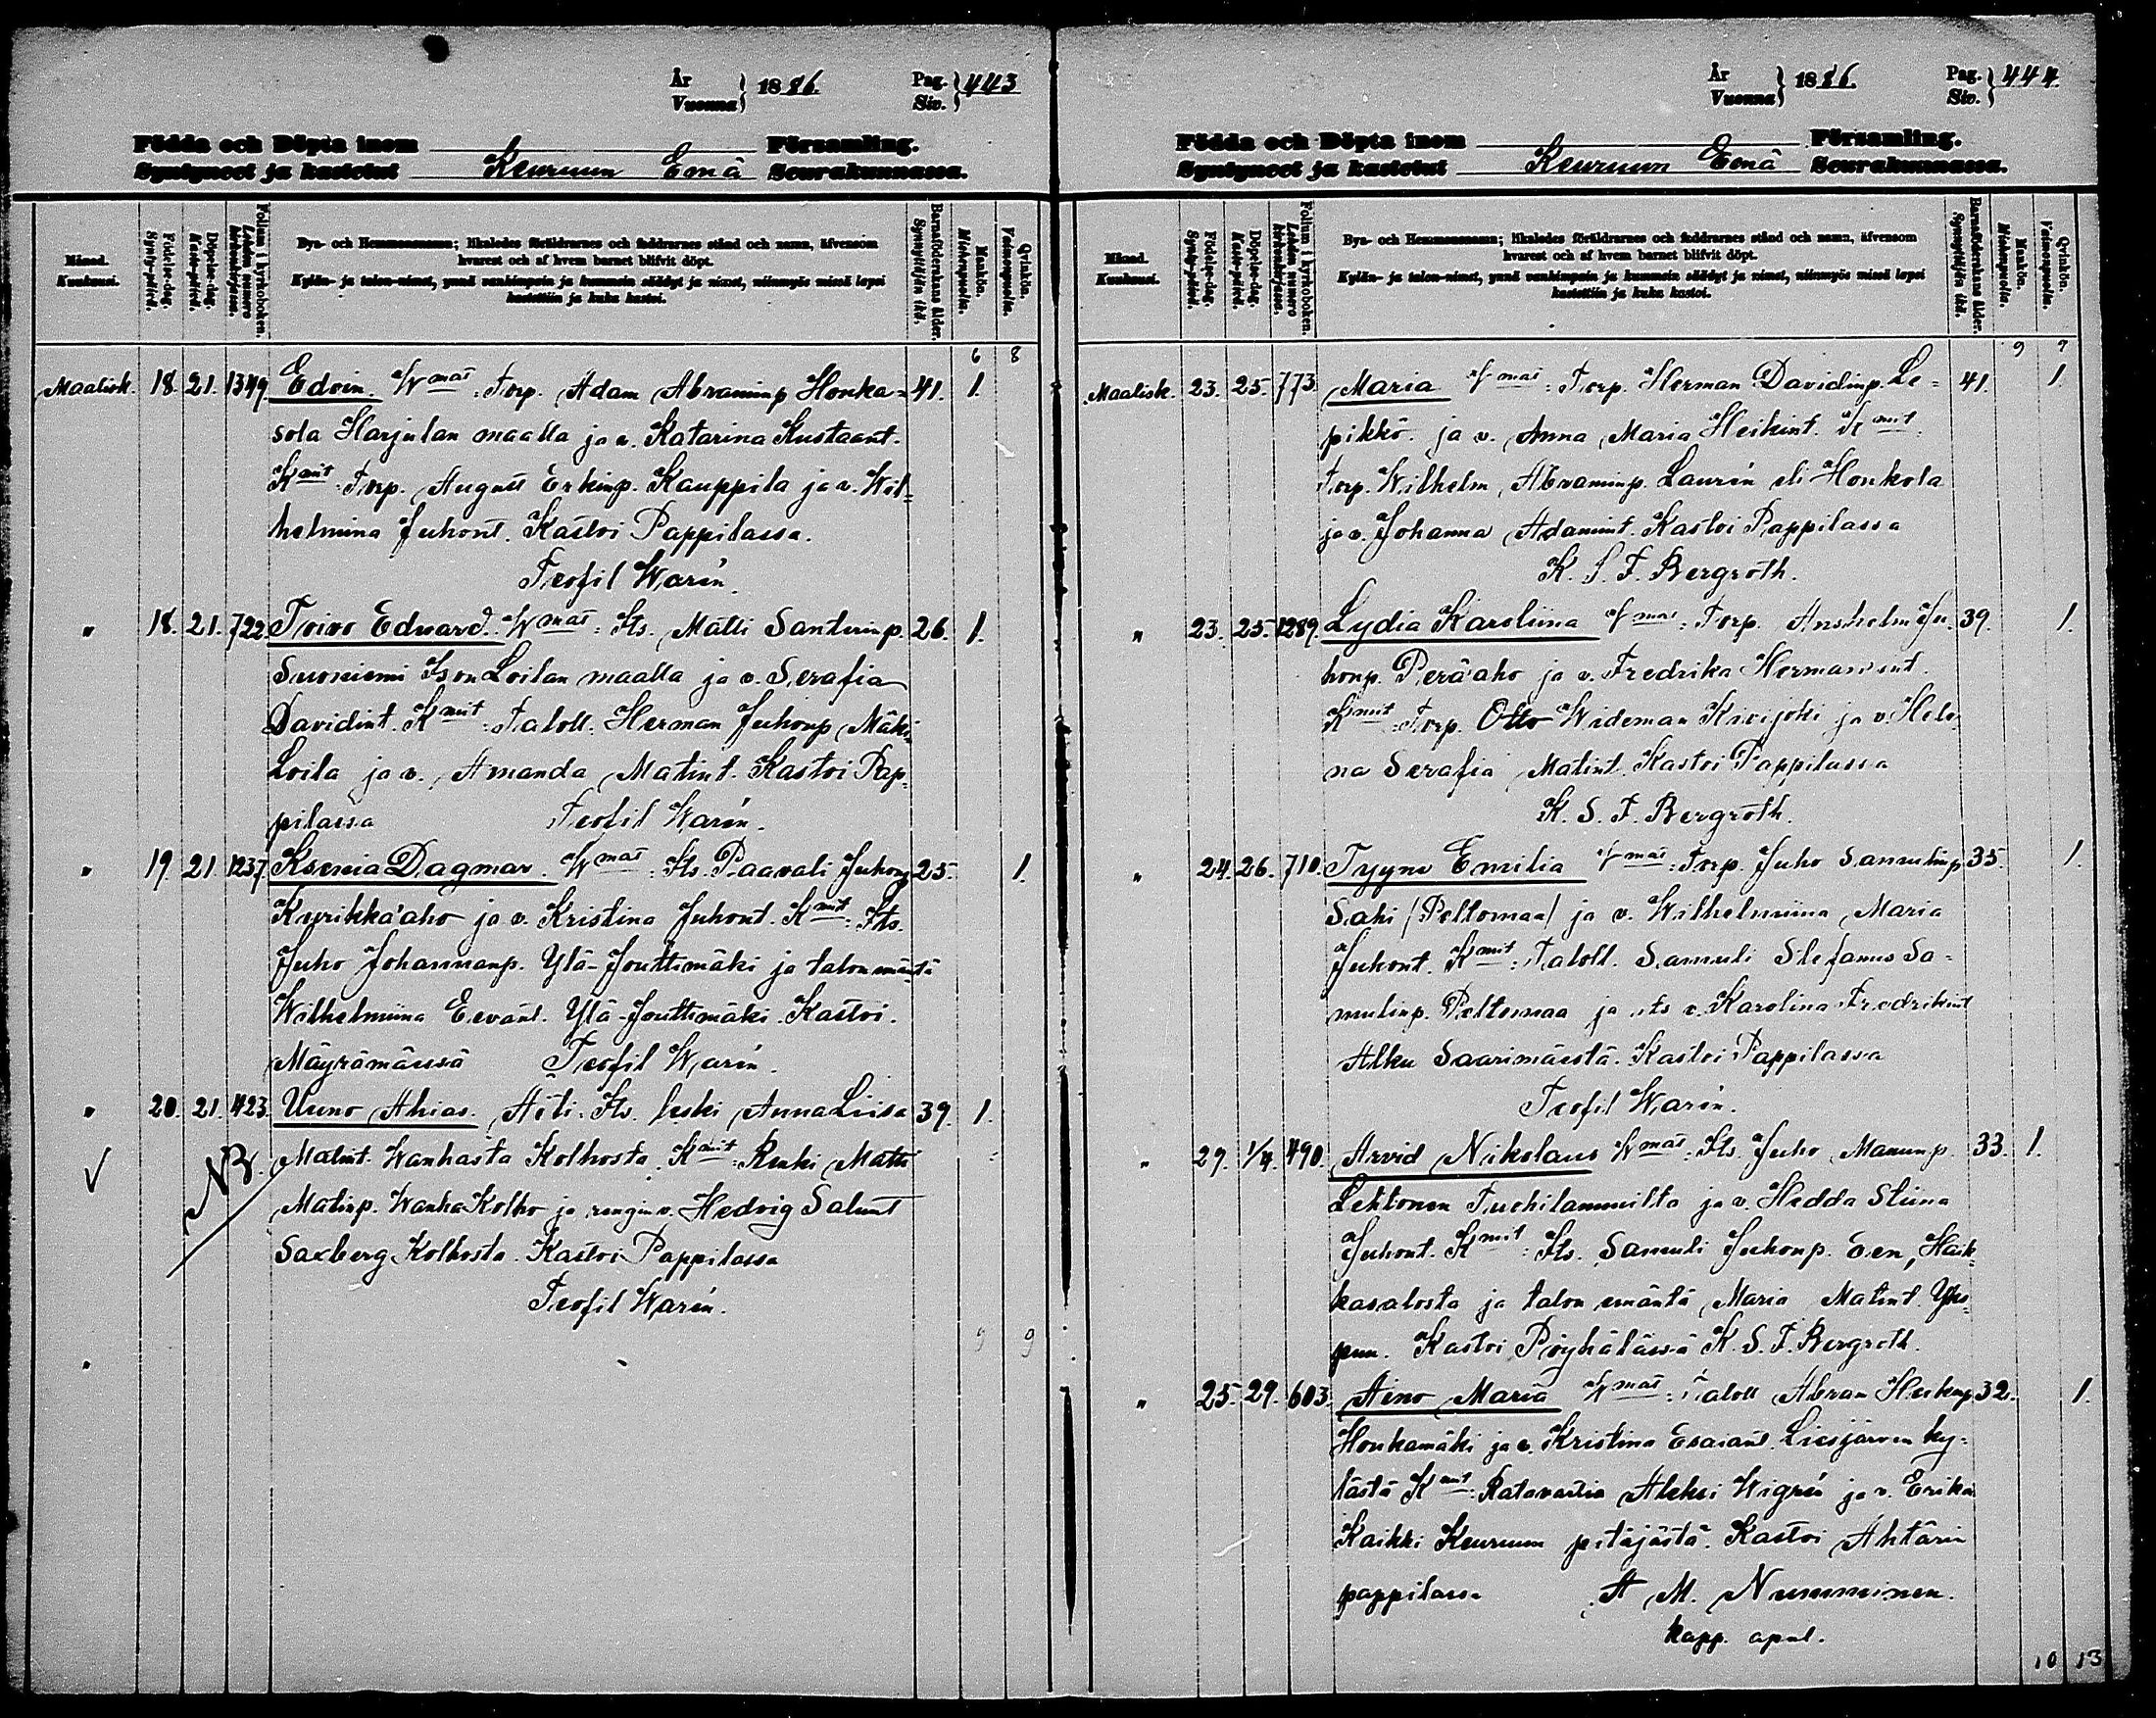 År
Vuonna } 1886.
Pag.
Siv. } 443
Födda och Döpta inom Församling.
Syntyneet ja kastetut Keuruun Emä Seurakunnassa.
Månad.
Kuukausi.
Födelse-dag.
Synty-päivä.
Döpelse-dag.
Kaste-päivä.
Folium i kyrkoboken.
Lehden numero
kirkonkirjassa.
Bya- och Hemmansnamn; likaledes föräldrarnes och faddrarnes stånd och namn, äfvensom
hvarest och af hvem barnet blifvit döpt.
Kylän- ja talon-nimet, ynnä vanhimpain ja kummein säädyt ja nimet, niinmyös missä lapsi
kastettiin ja kuka kastoi.
Barnaföderskans ålder.
Synnyttäjän ikä.
Mankön.
Miehenpuolia.
Qvinkön.
Vaimonpuolia.
6 8
Maalisk. 18. 21. 1349 Edvin. Wmat: Torp. Adam Abraminp Honka= 41. 1.
sola Harjulan maalla ja v. Katarina Kustaant.
Kmit: Torp. August Erkinp. Kauppila ja v. Wil=
helmina Juhont. Kastoi Pappilassa.
Teofil Warén.
" 18. 21. 722. Toivo Edvard. Wmat: Its. Matti Santerinp. 26. 1.
Suoniemi Ison Loilan maalla ja v. Serafia
Davidint. Kmit: Taloll. Herman Juhonp Mäki=
Loila ja v. Amanda Matint. Kastoi Pap=
pilassa Teofil Warén.
" 19. 21. 1237. Ksenia Dagmar. Wmat: Its. Paavali Juhonp 25. 1.
Kyrikkä'aho ja v. Kristina Juhont. Kmit: Its.
Juho Johannanp. Ylä-Jouttimäki ja talon emäntä
Wilhelmiina Eevant. Ylä-Jouttimäki. Kastoi.
Mäyrämäessä Teofil Warén.
" 20. 21. 423. Uuno Ahias. Äiti: Its. leski Anna Liisa 39. 1.
√ NB. Matint. Wanhasta Kolhosta. Kmit: Renki Matti
Matinp. Wanha Kolho ja rengin v. Hedvig Salunt
Saxberg Kolhosta. Kastoi Pappilassa
Teofil Warén.
9 9
År
Vuonna } 1886.
Pag.
Siv. } 444.
Födda och Döpta inom Församling.
Syntyneet ja kastetut Keuruun Emä Seurakunnassa.
Månad.
Kuukausi.
Födelse-dag.
Synty-päivä.
Döpelse-dag.
Kaste-päivä.
Folium i kyrkoboken.
Lehden numero
kirkonkirjassa.
Bya- och Hemmansnamn; likaledes föräldrarnes och faddrarnes stånd och namn, äfvensom
hvarest och af hvem barnet blifvit döpt.
Kylän- ja talon-nimet, ynnä vanhimpain ja kummein säädyt ja nimet, niinmyös missä lapsi
kastettiin ja kuka kastoi.
Barnaföderskans ålder.
Synnyttäjän ikä.
Mankön.
Miehenpuolia.
Qvinkön.
Vaimonpuolia.
9 9
Maalisk. 23. 25. 773. Maria Wmat: Torp. Herman Davidinp. Le= 41. 1.
pikkö. ja v. Anna Maria Heikint. Kmit.
Torp. Wilhelm Abraminp. Laurén eli Honkola
ja v. Johanna Adamint. Kastoi Pappilassa
K. S. F. Bergroth.
" 23. 25. 1289. Lydia Karoliina Wmat: Torp. Anshelm Ju. 39. 1.
honp. Perä'aho ja v. Fredrika Hermanint.
Kmit: Torp. Otto Wideman Kivijoki ja v. Hele
na Serafia Matint. Kastoi Pappilassa
K. S. F. Bergroth.
" 24. 26. 710. Tyyne Emilia Wmat: Torp. Juho Samulinp 35. 1.
Sahi /Peltomaa/ ja v. Wilhelmiina Maria
Juhont. Kmit: Taloll. Samuli Stefanus Sa=
mulinp. Peltomaa ja its v. Karolina Fredrikint
Alku Saarimäestä. Kastoi Pappilassa
Teofil Warén.
" 29. 1/4. 490. Arvid Nikolaus Wmat: Its. Juho Manunp. 33. 1.
Lehtonen Tuohilammilta ja v. Hedda Stiina
Juhont. Kmit: Its. Samuli Juhonp. Haik=
kasalosta ja talon emäntä Maria Matint.
Kastoi Pöyhölässä K. S. F. Bergroth.
" 25. 29. 603. Aino Maria Wmat: Taloll Abram Heikinp 32. 1.
Honkamäki ja v. Kristina Esaiant. Liesjärven ky=
lästä Kmit: Ratavartia Aleksi Wigrén ja v. Erika
Kaikki Keuruun pitäjästä. Kastoi Ähtärin
pappilassa A M. Numminen.
kapp. apul.
10 13